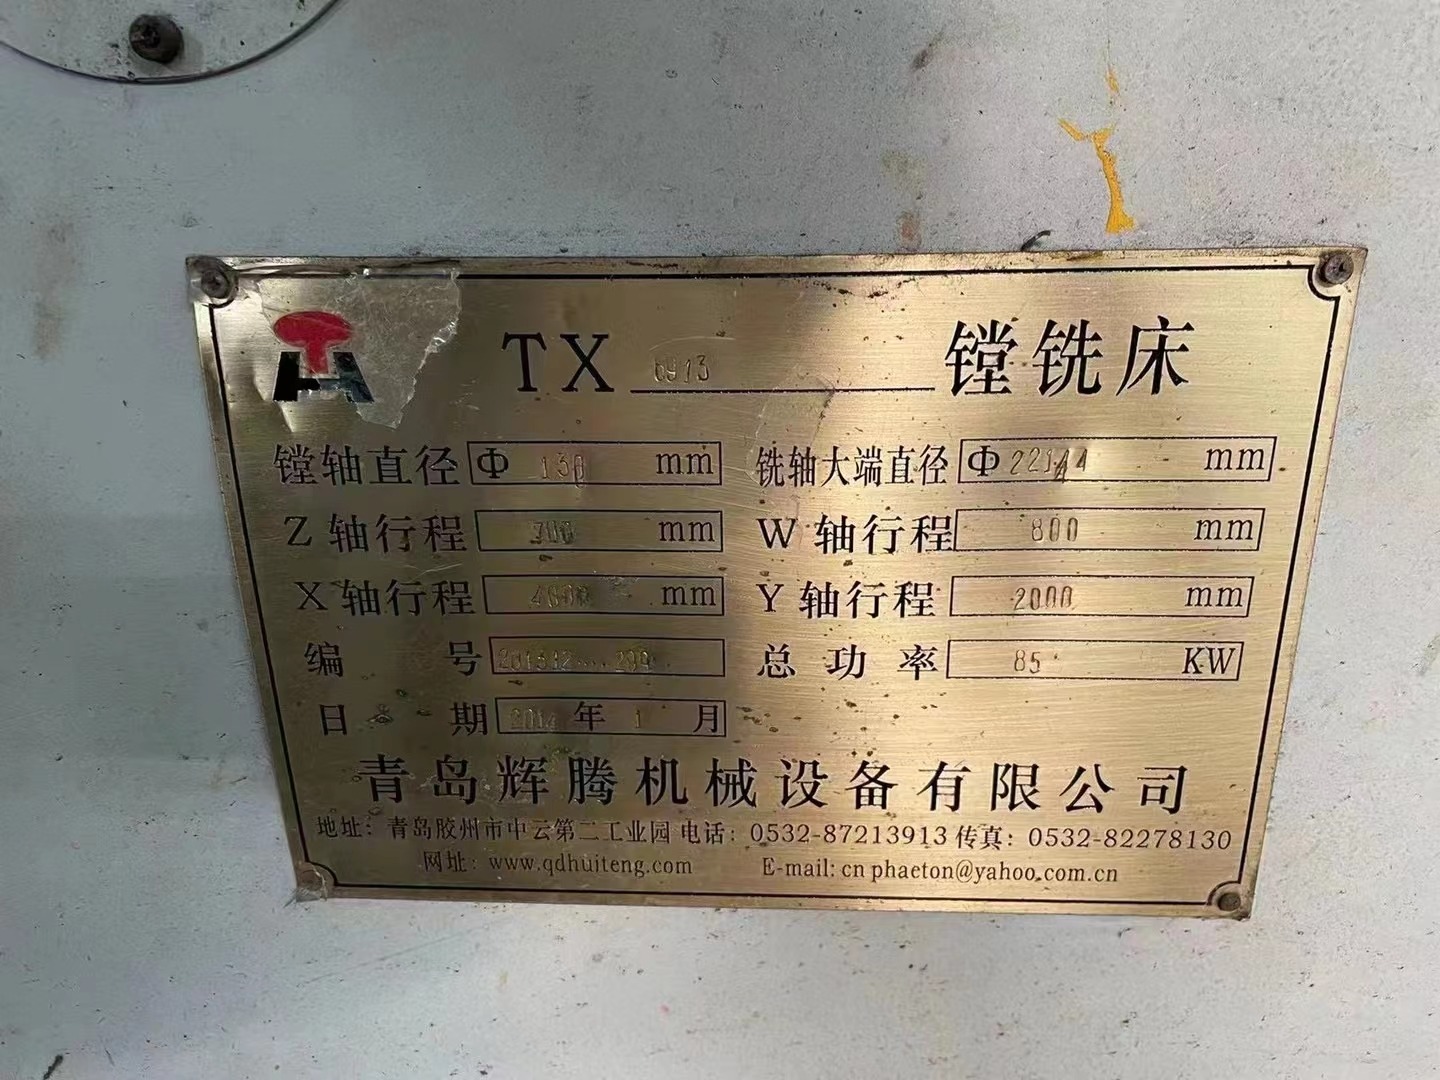 TX 6913 镗铣床
镗轴直径 Φ 130 mm 铣轴大端直径 Φ 22144 mm
Z 轴行程 900 mm W 轴行程 800 mm
X 轴行程 4800 mm Y 轴行程 2000 mm
编 号 总 功 率 85 KW
日 期 2014 年 1 月
青岛辉腾机械设备有限公司
地址：青岛胶州市中云第二工业园 电话：0532-87213913 传真：0532-82278130
网址：www.qdhuiteng.com E-mail: cn phaeton@yahoo.com.cn